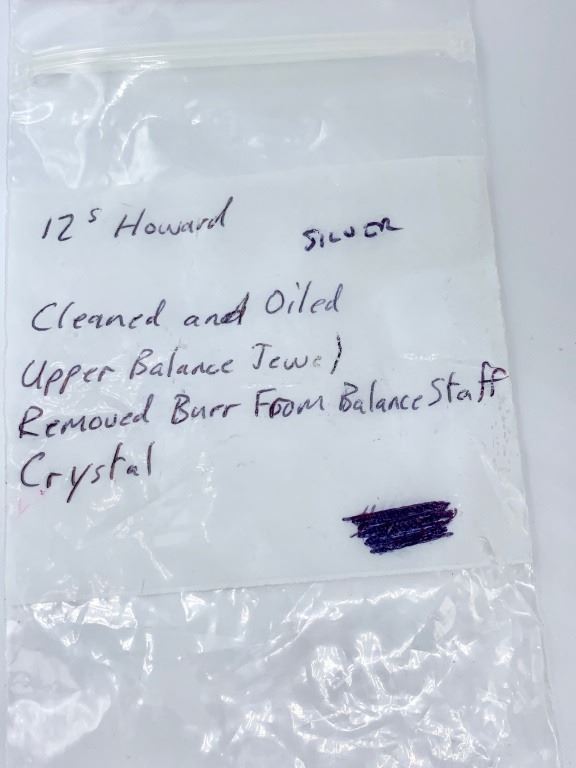 12s Howard
SILVER
Cleaned and Oiled
Upper Balance Jewel
Removed Burr From Balance Staff
Crystal